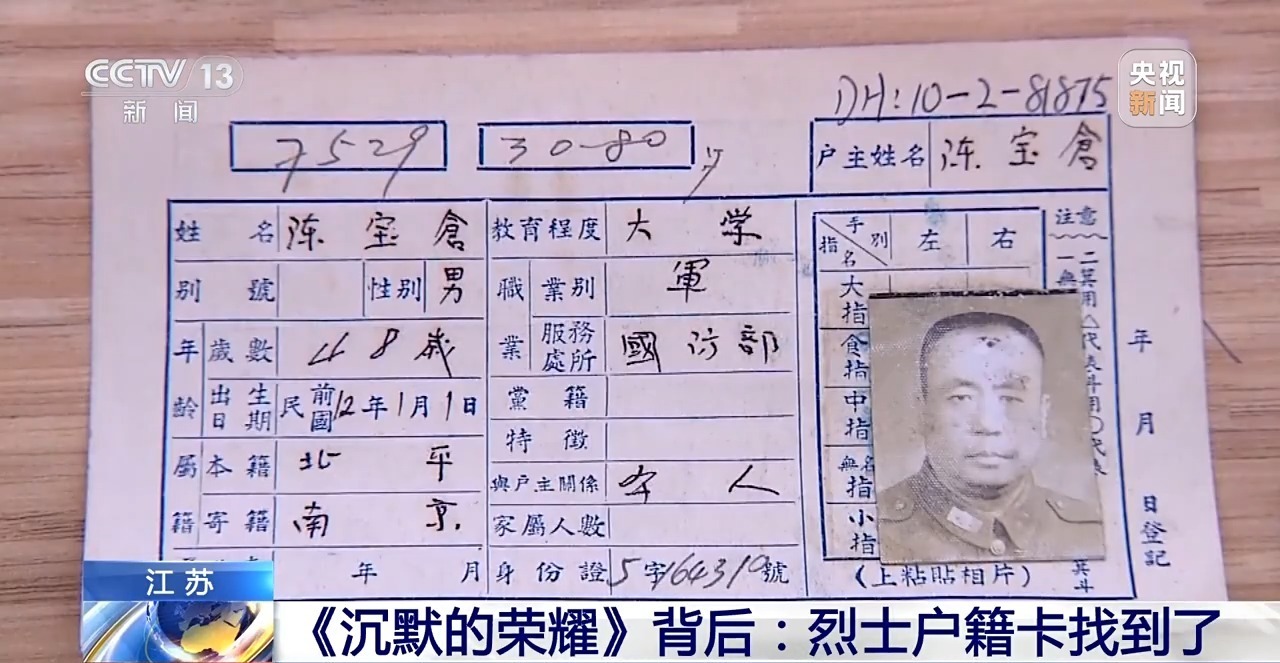 CCTV 13
新闻
央视
新闻
DH:10-2-81875
7529
30-80
户主姓名 陈宝倉
姓名 陈宝倉
别號
性别 男
年龄
歲數 48歲
出生日期 民國前12年1月1日
屬籍
本籍 北平
寄籍 南京
年 月
教育程度 大学
職業
業别 軍
服務處所 國防部
黨籍
特徵
與戶主關係 本人
家屬人數
身份證 5字164310號
手别 指名 左 右
大指
食指
中指
無名指
小指
(上粘貼相片)
注意
年 月 日登記
江苏
《沉默的荣耀》背后：烈士户籍卡找到了